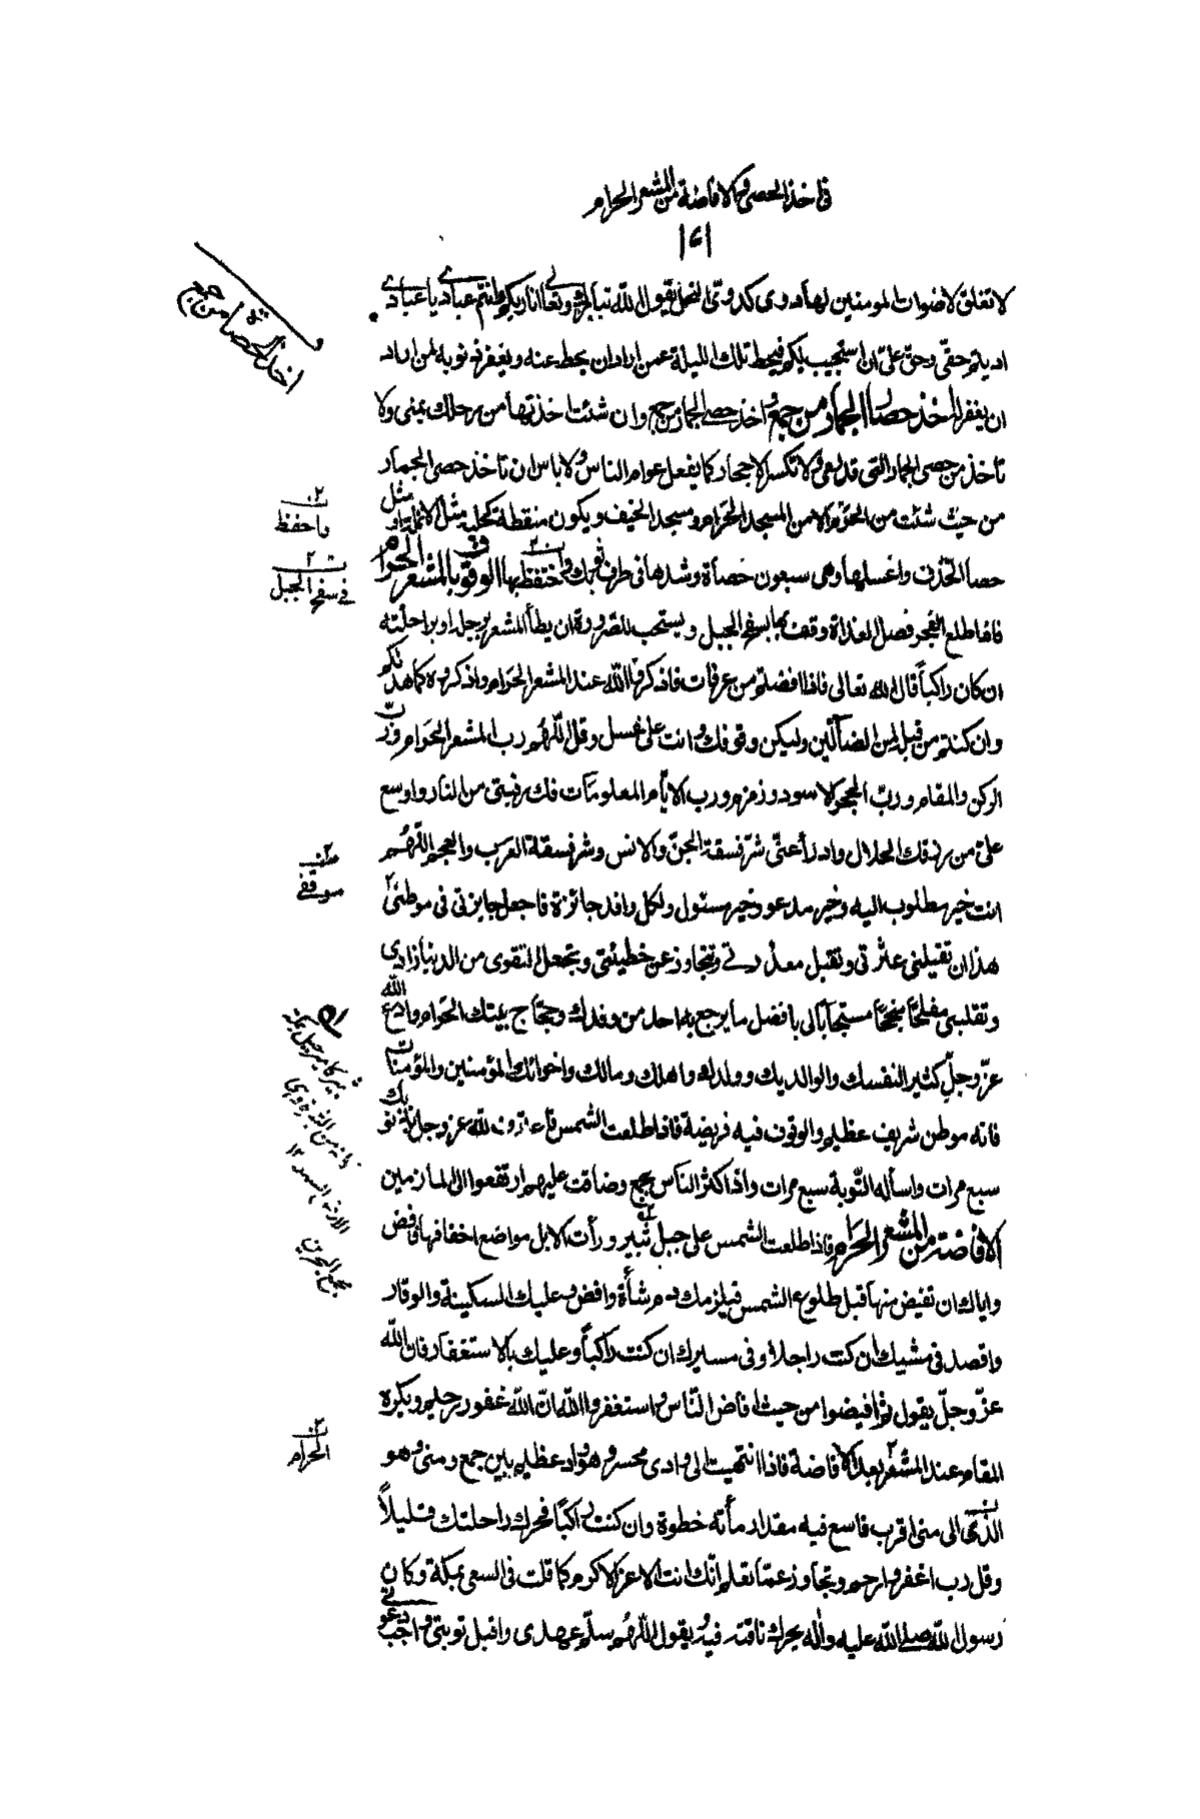 فی اخذ الحصی و الافاضة من المشعر الحرام
۱۶۱
لا تغلق لاصوات المومنین لها دوی کدوی النحل یقول الله تبارک و تعالی انا ربکم و انتم عبادی یا عبادی
ادیتم حقی و حق علی ان استجیب لکم فیحط تلک اللیلة عمن اراد ان یحط عنه و یغفر ذنوبه لمن اراد
ان یغفر له اخذ حصا الجمار من جمع و خذ حصی الجمار من جمع و ان شئت اخذتها من رحلک بمنی و لا
تاخذ من حصی الجمار التی قد رمی و لا تکسر الاحجار کما یفعل عوام الناس و لا باس ان تاخذ حصی الجمار
من حیث شئت من الحرم الا من المسجد الحرام و مسجد الخیف و یکون منقطة کحلیة مثل الانملة او مثل
حصا الخذف و اغسلها و هی سبعون حصاة و شدها فی طرف ثوبک و احتفظ بها الوقوف بالمشعر الحرام
فاذا طلع الفجر فصل الغداة وقف بها بسفح الجبل و یستحب للصرورة ان یطأ المشعر برجله او براحلته
ان کان راکباً قال الله تعالی فاذا افضتم من عرفات فاذکروا الله عند المشعر الحرام و اذکروه کما هدیکم
و ان کنتم من قبله لمن الضآلّین و لیکن وقوفک و انت علی غسل و قل اللّهم رب المشعر الحرام و ربّ
الرکن و المقام و ربّ الحجر الاسود و زمزم و رب الایّام المعلومات فک رقبتی من النار و اوسع
علیّ من رزقک الحلال و ادرأ عنّی شرّ فسقة الجنّ و الانس و شر فسقة العرب و العجم اللّهُم
انت خیر مطلوب الیه و خیر مدعو و خیر مسئول و لکل وافد جائزة فاجعل جایزتی فی موطنی
هذا ان تقیلنی عثرتی و تقبل معذرتی و تتجاوز عن خطیئتی و تجعل التقوی من الدنیا زادی
و تقلبنی مفلحًا منجحًا مستجابًا لی بافضل ما یرجع به احد من وفدک و حجّاج بیتک الحرام و ادع الله
عزّ و جلّ کثیرا لنفسک و الوالدیک و ولدک و اهلک و مالک و اخوانک و المؤمنین و المؤمنات
فانه موطن شریف عظیم و الوقوف فیه فریضة فاذا طلعت الشمس فاعترف لله عز و جل بذنوبک
سبع مرات و اسأله التّوبة سبع مرات و اذا کثر الناس بجمع و ضاقت علیهم ارتفعوا الی المازمین
الافاضة من المشعر الحرام فاذا طلعت الشمس علی جبل ثبیر و رأت الابل مواضع اخفافها فافض
و ایاک ان تفیض منها قبل طلوع الشمس فیلزمک دم شأة و افض و علیک السکینة و الوقار
و اقصد فی مشیک ان کنت راجلا و فی مسیرک ان کنت راکباً و علیک بالاستغفار فان الله
عزّ و جلّ یقول ثم افیضوا من حیث افاض النّاس و استغفروا الله انّ الله غفور رحیم و یکره
المقام عند المشعر بعد الافاضة فاذا انتهیت الی وادی محسر و هو واد عظیم بین جمع و منی و هو
الذی الی منی اقرب فاسع فیه مقدار مأته خطوة و ان کنت راکباً فحرک راحلتک قلیلاً
و قل رب اغفر و ارحم و تجاوز عمّا تعلم انّک انت الاعز الاکرم کما قلت فی السعی بمکة و کان
رسول الله صلی الله علیه و اله یحرک ناقته فیه و یقول اللّهم سلّم عهدی و اقبل توبتی و اجب دعوتی
اخذ الحصا من جمع
و احفظ
فی سفح الجبل
موقفی
ثبیر کامیر جبل بمکة
مجمع البحرین
الحرام